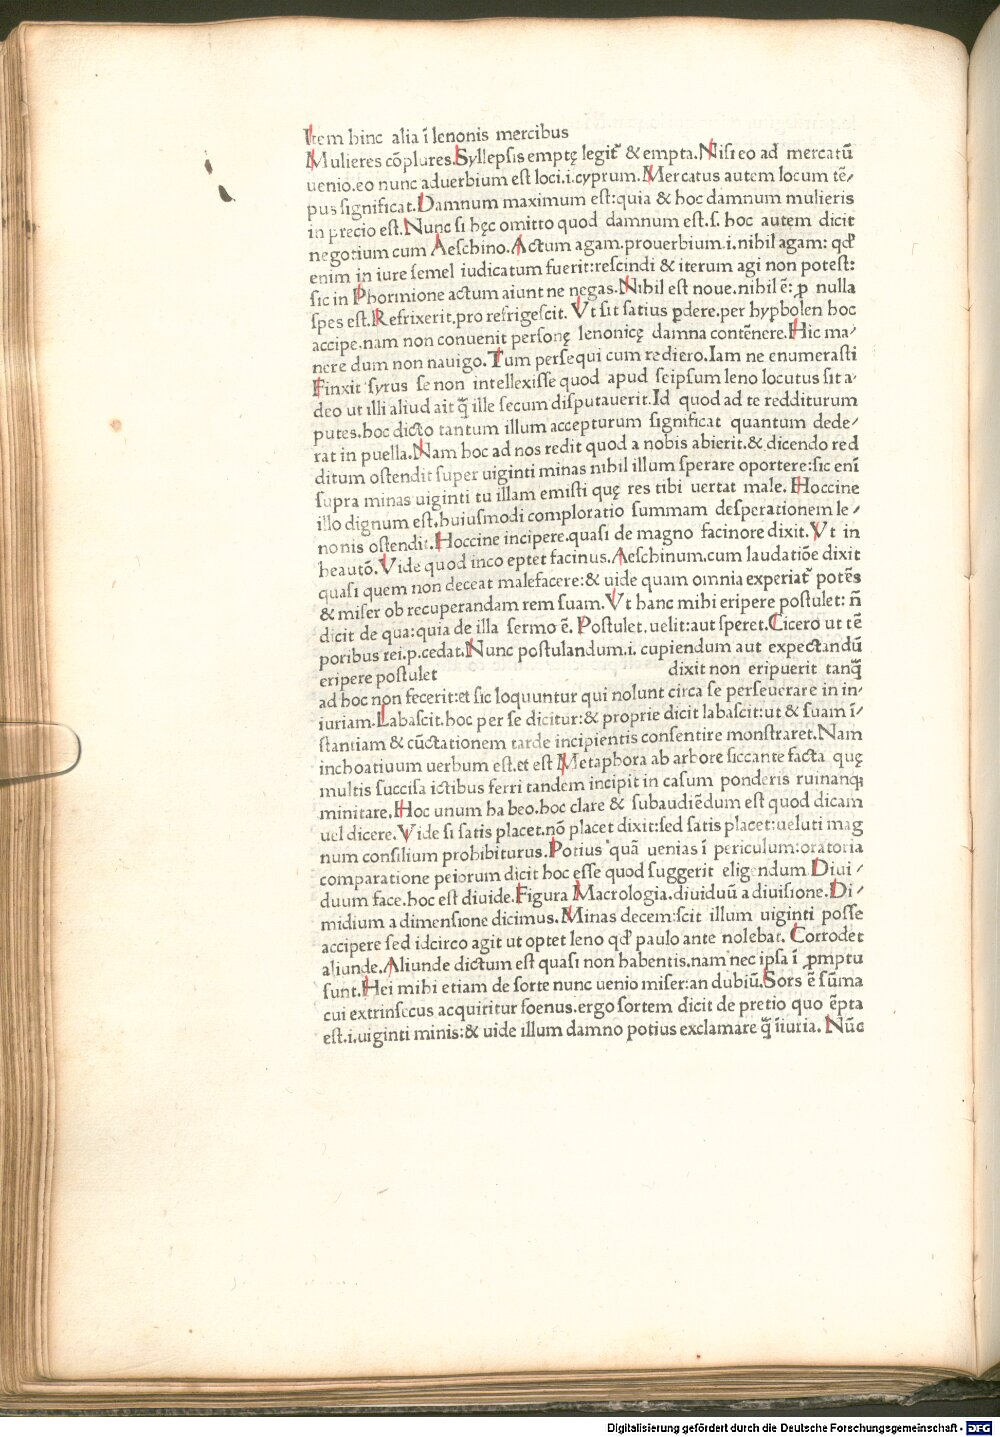 Item hinc alia ī lenonis mercibus
Mulieres cōplures.Syllepsis emptę legit᷑ & empta.Nisi eo ad mercatū
uenio.eo nunc aduerbium est loci.i.cyprum.Mercatus autem locum tē/
pus significat.Damnum maximum est:quia & hoc damnum mulieris
in precio est.Nunc si hęc omitto quod damnum est.s. hoc autem dicit
negotium cum Aeschino.Actum agam.prouerbium.i.nihil agam: qđ
enim in iure semel iudicatum fuerit:rescindi & iterum agi non potest:
sic in Phormione actum aiunt ne negas.Nihil est noue.nihil ē: ꝓ nulla
spes est.Refrixerit,pro refrigescit. Vt sit satius ꝑdere.per hypbolen hoc
accipe.nam non conuenit personę lenonicę damna contēnere.Hic ma/
nere dum non nauigo.Tum persequi cum rediero.Iam ne enumerasti
Finxit syrus se non intellexisse quod apud seipsum leno locutus sit a/
deo ut illi aliud ait q̄̄ ille secum disputauerit.Id quod ad te redditurum
putes.hoc dicto tantum illum accepturum significat quantum dede/
rat in puella.Nam hoc ad nos redit quod a nobis abierit.& dicendo red
ditum ostendit super uiginti minas nihil illum sperare oportere:sic enī
supra minas uiginti tu illam emisti quę res tibi uertat male. Hoccine
illo dignum est,huiusmodi comploratio summam desperationem le/
nonis ostendit.Hoccine incipere.quasi de magno facinore dixit.Vt in
heautō.Vide quod inco eptet facinus.Aeschinum.cum laudatiōe dixit
quasi quem non deceat malefacere:& uide quam omnia experiat᷑ potēs
& miser ob recuperandam rem suam.Vt hanc mihi eripere postulet: n̄
dicit de qua:quia de illa sermo ē. Postulet.uelit:aut speret.Cicero ut tē
poribus rei.p.cedat.Nunc postulandum.i. cupiendum aut expectandū
eripere postulet dixit non eripuerit tanq̄̄
ad hoc non fecerit:et sic loquuntur qui nolunt circa se perseuerare in in/
iuriam.Labascit.hoc per se dicitur:& proprie dicit labascit:ut & suam ī/
stantiam & cūctationem tarde incipientis consentire monstraret.Nam
inchoatiuum uerbum est.et est Metaphora ab arbore siccante facta quę
multis succisa ictibus ferri tandem incipit in casum ponderis ruinanqꝫ
minitare.Hoc unum ha beo.hoc clare & subaudiēdum est quod dicam
uel dicere.Vide si satis placet.nō placet dixit:sed satis placet:ueluti mag
num consilium prohibiturus.Potius quā uenias ī periculum:oratoria
comparatione peiorum dicit hoc esse quod suggerit eligendum.Diui/
duum face.hoc est diuide.Figura Macrologia.diuiduū a diuisione.Di/
midium a dimensione dicimus.Minas decem:scit illum uiginti posse
accipere sed idcirco agit ut optet leno qđ paulo ante nolebat. Corrodet
aliunde.Aliunde dictum est quasi non habentis.nam nec ipsa ī ꝓmptu
sunt.Hei mihi etiam de sorte nunc uenio miser:an dubiū.Sors ē sūma
cui extrinsecus acquiritur foenus.ergo sortem dicit de pretio quo ēpta
est.i.uiginti minis:& uide illum damno potius exclamare q̄̄ īiuria. Nūc
Digitalisierung gefördert durch die Deutsche Forschungsgemeinschaft - DFG